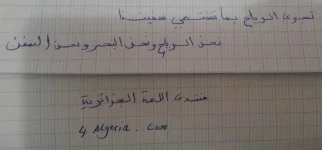 تجري الرياح بما تشتهي سفينتنا
نحن الرياح ونحن البحر ونحن السفن
منتدى اللمة الجزائرية
4 Algeria . Com